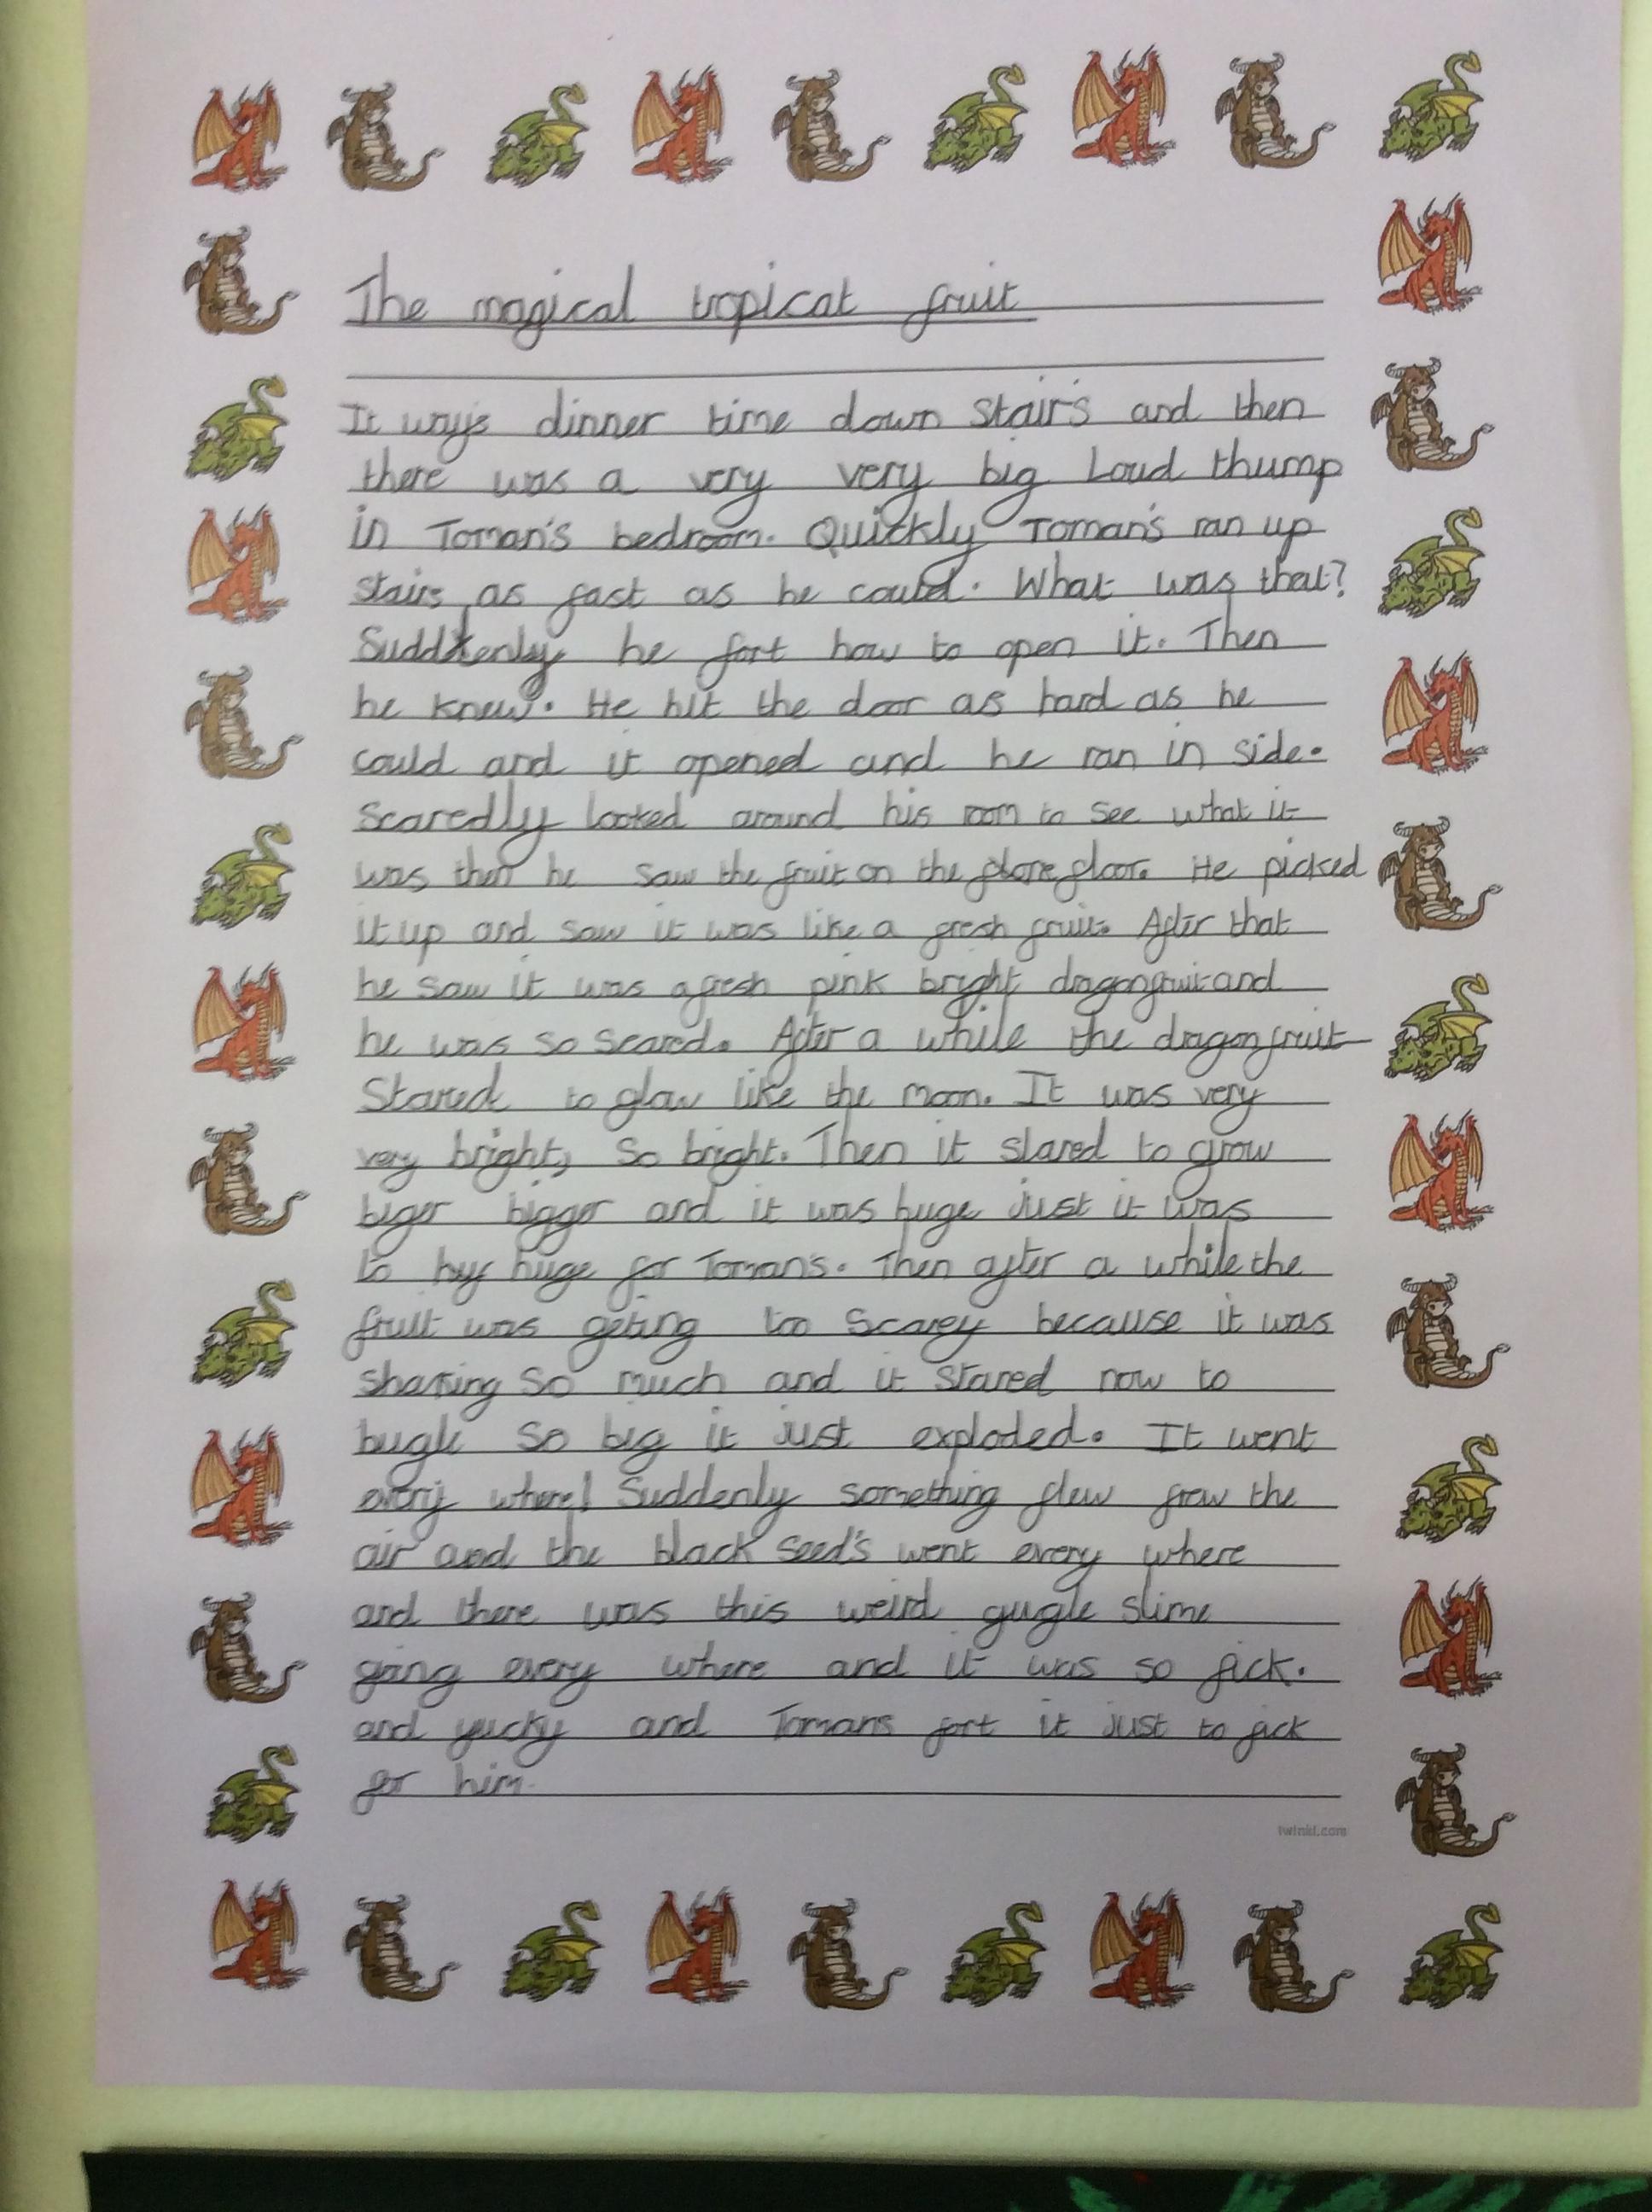 The magical tropicat fruit
It was dinner time down stair's and then
there was a very very big Loud thump
in Toman's bedroom. Quickly Toman's ran up
stairs as fast as he could. What was that?
Suddenly he fort how to open it. Then
he knew. He hit the door as hard as he
could and it opened and he ran in side.
Scaredly looked around his room to see what it
was then he saw the fruit on the flore floor. He picked
it up and saw it was like a fresh fruit. After that
he saw it was a fresh pink bright dragonfruit and
he was so scared. After a while the dragonfruit
Stared to glow like the moon. It was very
very bright, So bright. Then it stared to grow
biger bigger and it was huge just it was
to huge for Toman's. Then after a while the
fruit was geting too Scarey because it was
shaking so much and it stared now to
bugle so big it just exploded. It went
every where! Suddenly something flew frew the
air and the black seed's went every where
and there was this weird gugle slime
going every where and it was so fick.
and yucky and Tomans fort it just to fick
for him.
twinkl.com